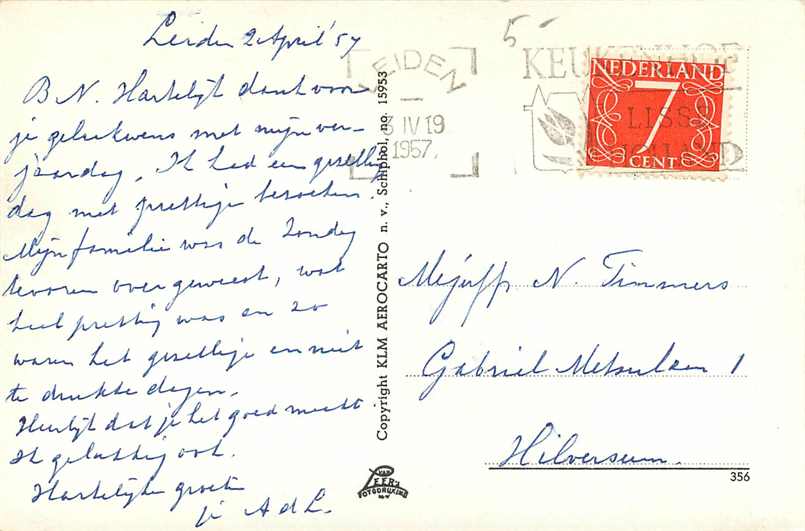 Leiden 2 April '57
B N. Hartelijk dank voor
je gelukwens met mijn ver-
jaardag, Ik had een gezellige
dag met prettige bezoeken.
Mijn familie was de Zondag
tevoren over geweest, wat
heel prettig was en zo
waren het gezellige en niet
te drukke dagen.
Heerlijk dat je het goed maakt
Ik gelukkig ook.
Hartelijke groeten
je A d L.
Copyright KLM AEROCARTO n. v., Schiphol, no. 15953
VAN LEER'S
FOTODRUKIND
N.V.
5-
LEIDEN
3 IV 19
1957
KEUKENHOF
LISSE
NEDERLAND
7
CENT
Mejuffr N. Timmers
Gabriel Metsulaan 1
Hilversum.
356